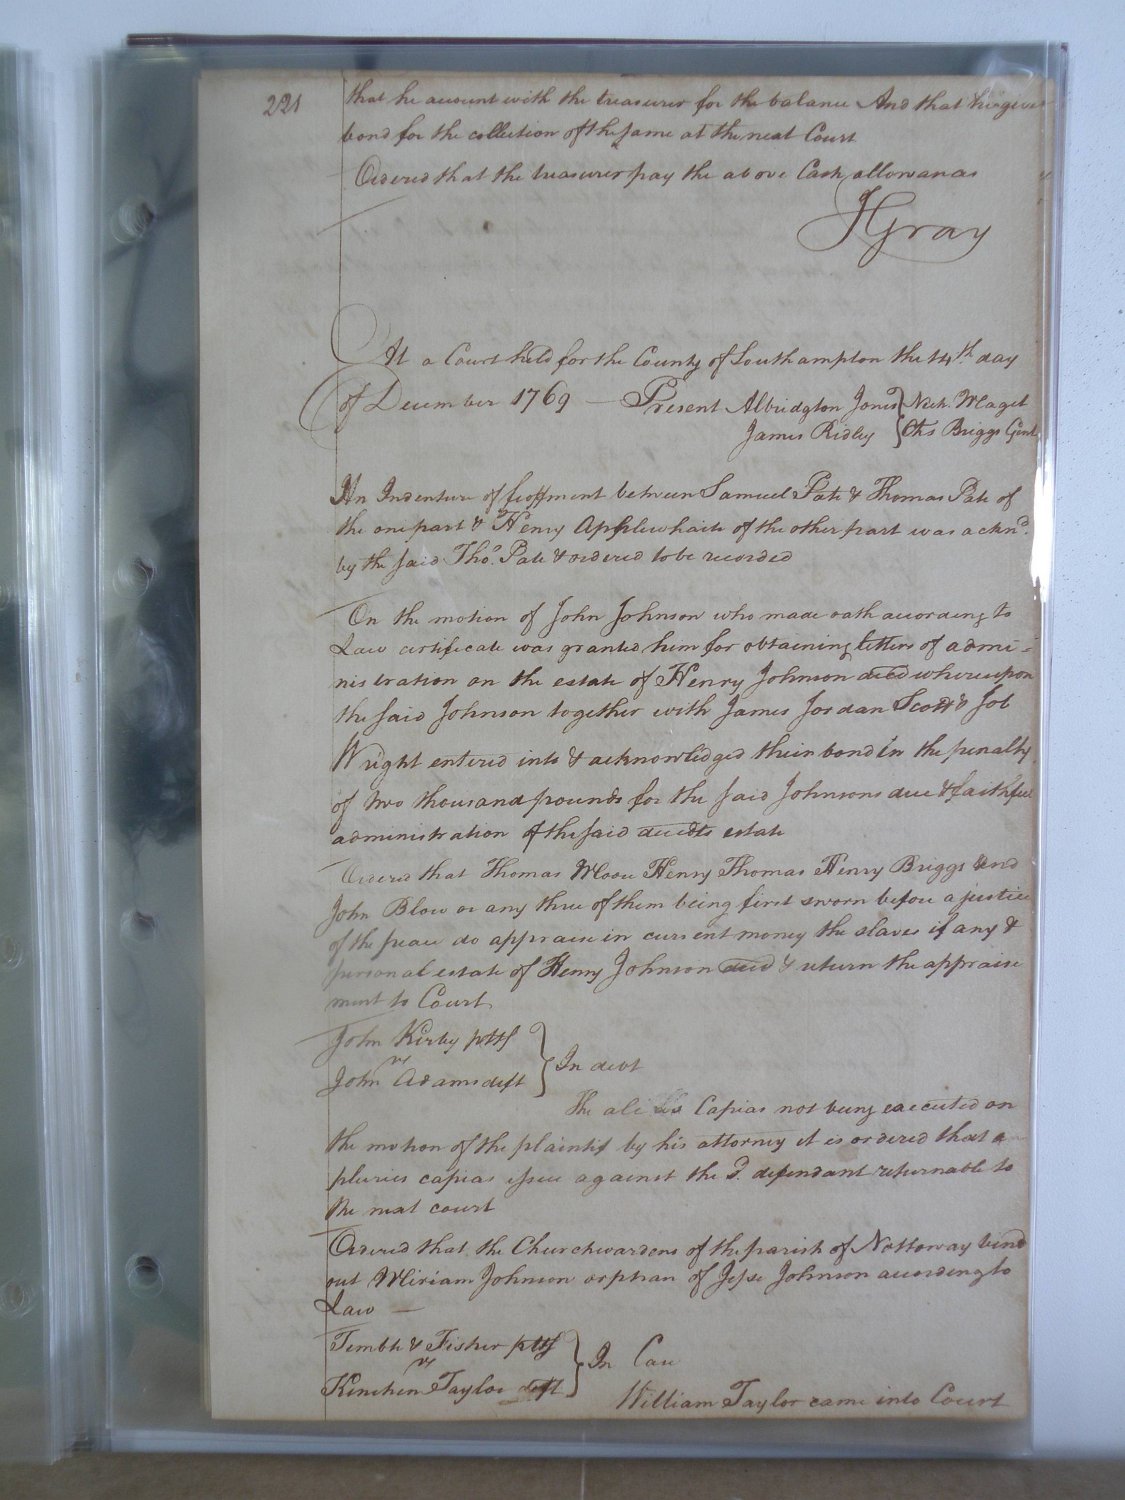 221
that he account with the treasurer for the balance And that he give
bond for the collection of the same at the next Court
Ordered that the treasurer pay the above Cash allowances
JGray
At a Court held for the County of Southampton the 14th day
of December 1769 — Present Albridgton Jones } Nich. Maget
James Ridley } Chs Briggs Gent
An Indenture of feoffment between Samuel Pate & Thomas Pate of
the one part & Henry Applewhaite of the other part was acknd.
by the said Tho.s Pate & ordered to be recorded
On the motion of John Johnson who made oath according to
Law certificate was granted him for obtaining letters of admi=
nistration on the estate of Henry Johnson decd whereupon
the said Johnson together with James Jordan Scott & Job
Wright entered into & acknowledged their bond in the penalty
of two thousand pounds for the said Johnsons due & faithful
administration of the said decedts estate
Ordered that Thomas Moore Henry Thomas Henry Briggs and
John Blow or any three of them being first sworn before a justice
of the peace do appraise in current money the slaves if any &
personal estate of Henry Johnson decd & return the appraise
ment to Court
John Kirby pltff
vs
John Adams deft } In debt
The alias Capias not being executed on
the motion of the plaintif by his attorney it is ordered that a
pluries capias issue against the sd. defendant returnable to
the next court
Ordered that the Churchwardens of the parish of Nottoway bind
out Miriam Johnson orphan of Jesse Johnson according to
Law —
Tembte & Fisher pltff
vs
Kinchen Taylor deft } In Case
William Taylor came into Court